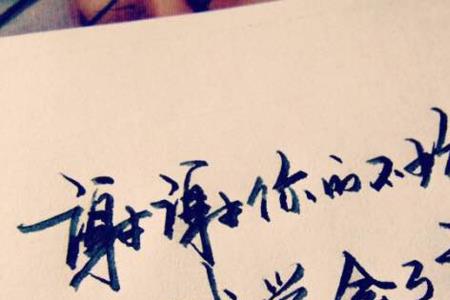 谢谢你的不
学会